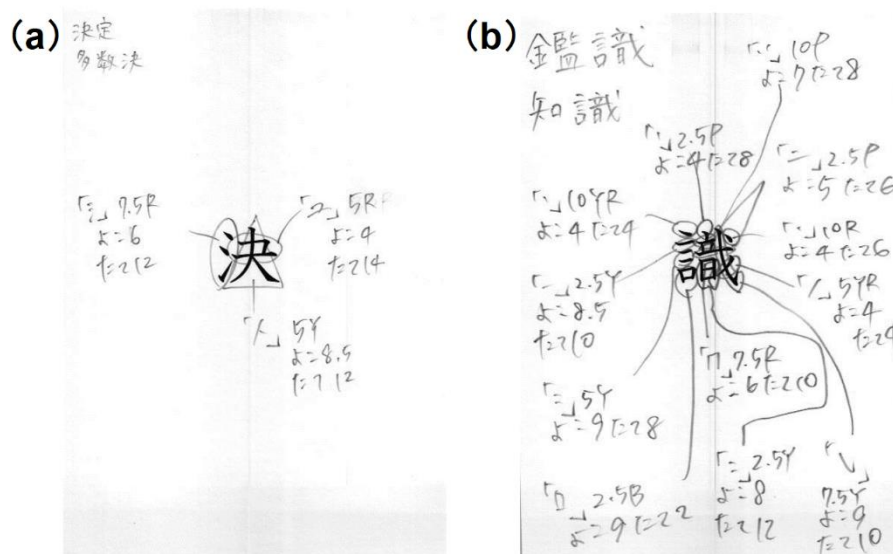 (a)
決定
多数決
「氵」7.5R
よこ6
たて12
「ユ」5R
よこ4
たて14
決
「人」5Y
よこ8.5
たて12
(b)
鑑識
知識
「ヽ」10P
よこ7たて8
「ヽ」2.5P
よこ4たて8
「二」2.5P
よこ5たて6
「ヽ」10YR
よこ4たて4
「ヽ」10R
よこ4たて6
識
「二」2.5Y
よこ8.5
たて10
「ノ」5YR
よこ4
「冂」7.5R
よこ6たて10
「二」5Y
よこ9たて8
「ロ」2.5B
よこ9たて2
「二」2.5Y
よこ8
たて12
7.5Y
よこ9
たて10